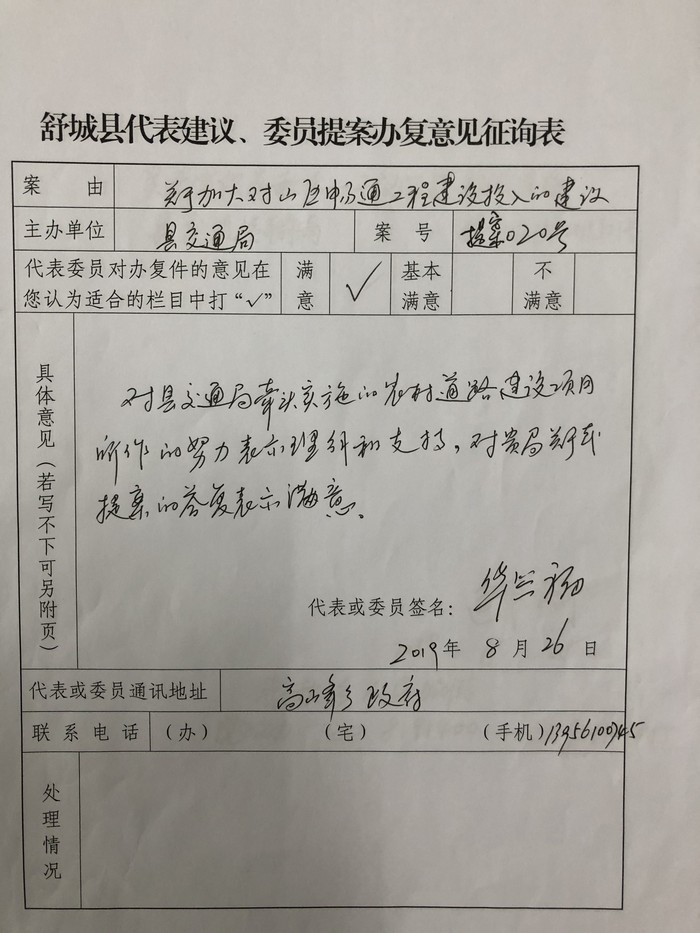 舒城县代表建议、委员提案办复意见征询表
案由 关于加大对山区畅通工程建设投入的建议
主办单位 县交通局 案号 提案020号
代表委员对办复件的意见在
您认为适合的栏目中打“√”
满意 √ 基本满意 不满意
具体意见（若写不下可另附页）
对县交通局牵头实施的农村道路建设项目
所作的努力表示理解和支持，对贵局关于
提案的答复表示满意。
代表或委员签名：华
2019年 8月 26日
代表或委员通讯地址 高峰乡政府
联系电话 （办） （宅） （手机）13956100745
处理情况